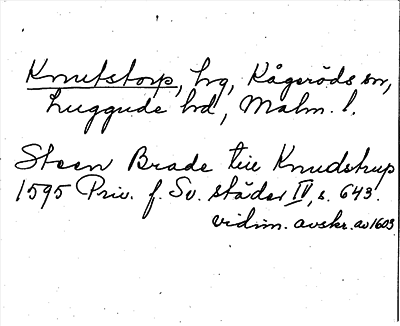 Knutstorp, hg, Kågeröds sn,
Luggude hd, Malm. l.
Steen Brade till Knudstrup
1595 Priv. f. Sv. städer IV, s. 643.
vidim. avskr. av 1603